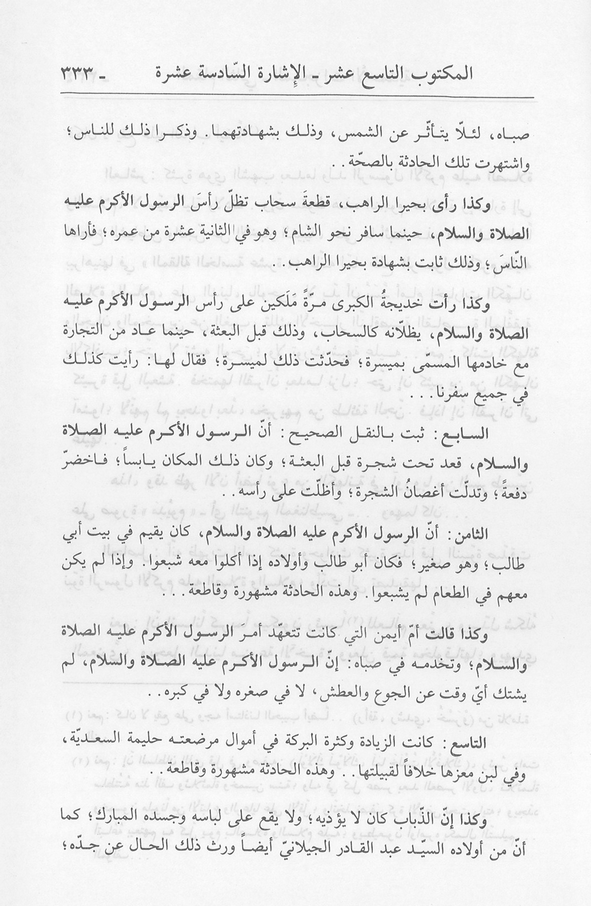 المكتوب التاسع عشر ـ الإشارة السّادسة عشرة ـ ٣٣٣
صبـاه، لئـلّا يتـأثّـر عن الشمس، وذلـك بشهـادتهمـا. وذكـرا ذلـك للنـاس؛
واشتهرت تلك الحادثة بالصحّة. .
وكذا رأى بحيرا الراهب، قطعةَ سحاب تظلّ رأسَ الرسول الأكرم عليـه
الصلاة والسلام، حينما سافر نحو الشام؛ وهو في الثانية عشرة من عمره؛ فأراها
النّاسَ؛ وذلك ثابت بشهادة بحيرا الراهب. .
وكذا رأت خديجةُ الكبرى مـرّةً مَلَكين على رأس الرسـول الأكرم عليـه
الصلاة والسلام، يظلّانه كالسحاب، وذلك قبل البعثة، حينما عـاد من التجارة
مع خادمها المسمّى بميسرة؛ فحدّثت ذلك لميسـرة؛ فقال لهـا: رأيت كذلـك
في جميع سفرنا. . .
السـابـع: ثبت بـالنقـل الصحيـح: أنّ الـرسـول الأكـرم عليـه الصـلاة
والسـلام، قعد تحت شجـرة قبل البعثـة؛ وكان ذلـك المكان يـابسـاً؛ فـاخضرّ
دفعةً؛ وتدلّت أغصانُ الشجرة؛ وأظلّت على رأسه. .
الثامن: أنّ الرسول الأكرم عليه الصلاة والسلام، كان يقيم في بيت أبي
طالب؛ وهو صغير؛ فكان أبو طالب وأولاده إذا أكلوا معه شبعوا. وإذا لم يكن
معهم في الطعام لم يشبعوا. وهذه الحادثة مشهورة وقاطعة. . .
وكذا قالت أمّ أيمن التي كانت تتعهّد أمـر الرسـول الأكرم عليـه الصلاة
والسـلام؛ وتخدمـه في صباه: إنّ الـرسول الأكـرم عليه الصـلاة والسـلام، لم
يشتك أيّ وقت عن الجوع والعطش، لا في صغره ولا في كبره. .
التاسع: كانت الزيادة وكثرة البركة في أموال مرضعتـه حليمة السعـديّة،
وفي لبن معزها خلافاً لقبيلتها. . وهذه الحادثة مشهورة وقاطعة. .
وكذا إنّ الذّباب كان لا يؤذيه؛ ولا يقع على لباسه وجسده المبارك؛ كما
أنّ من أولاده السيّـد عبد القـادر الجيلانيّ أيضـاً ورث ذلك الحـال عن جدّه؛